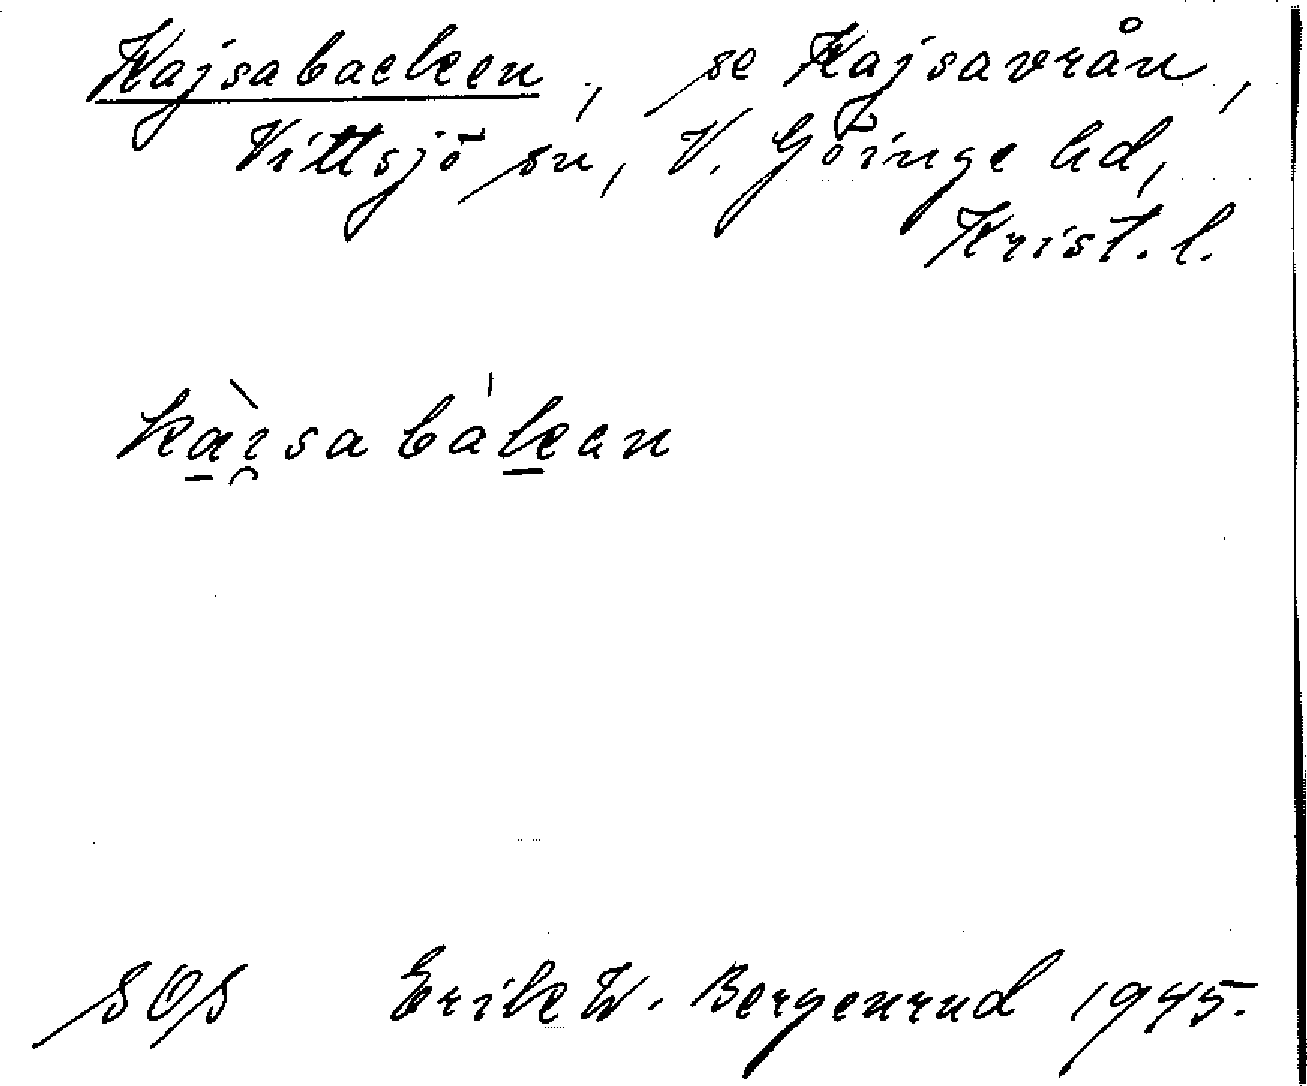 Kajsabacken, se Kajsavrån,
Vittsjö sn, V. Göinge hd,
Krist. l.
kài̯sabáken
SOS Erik W. Bergenrud 1945.